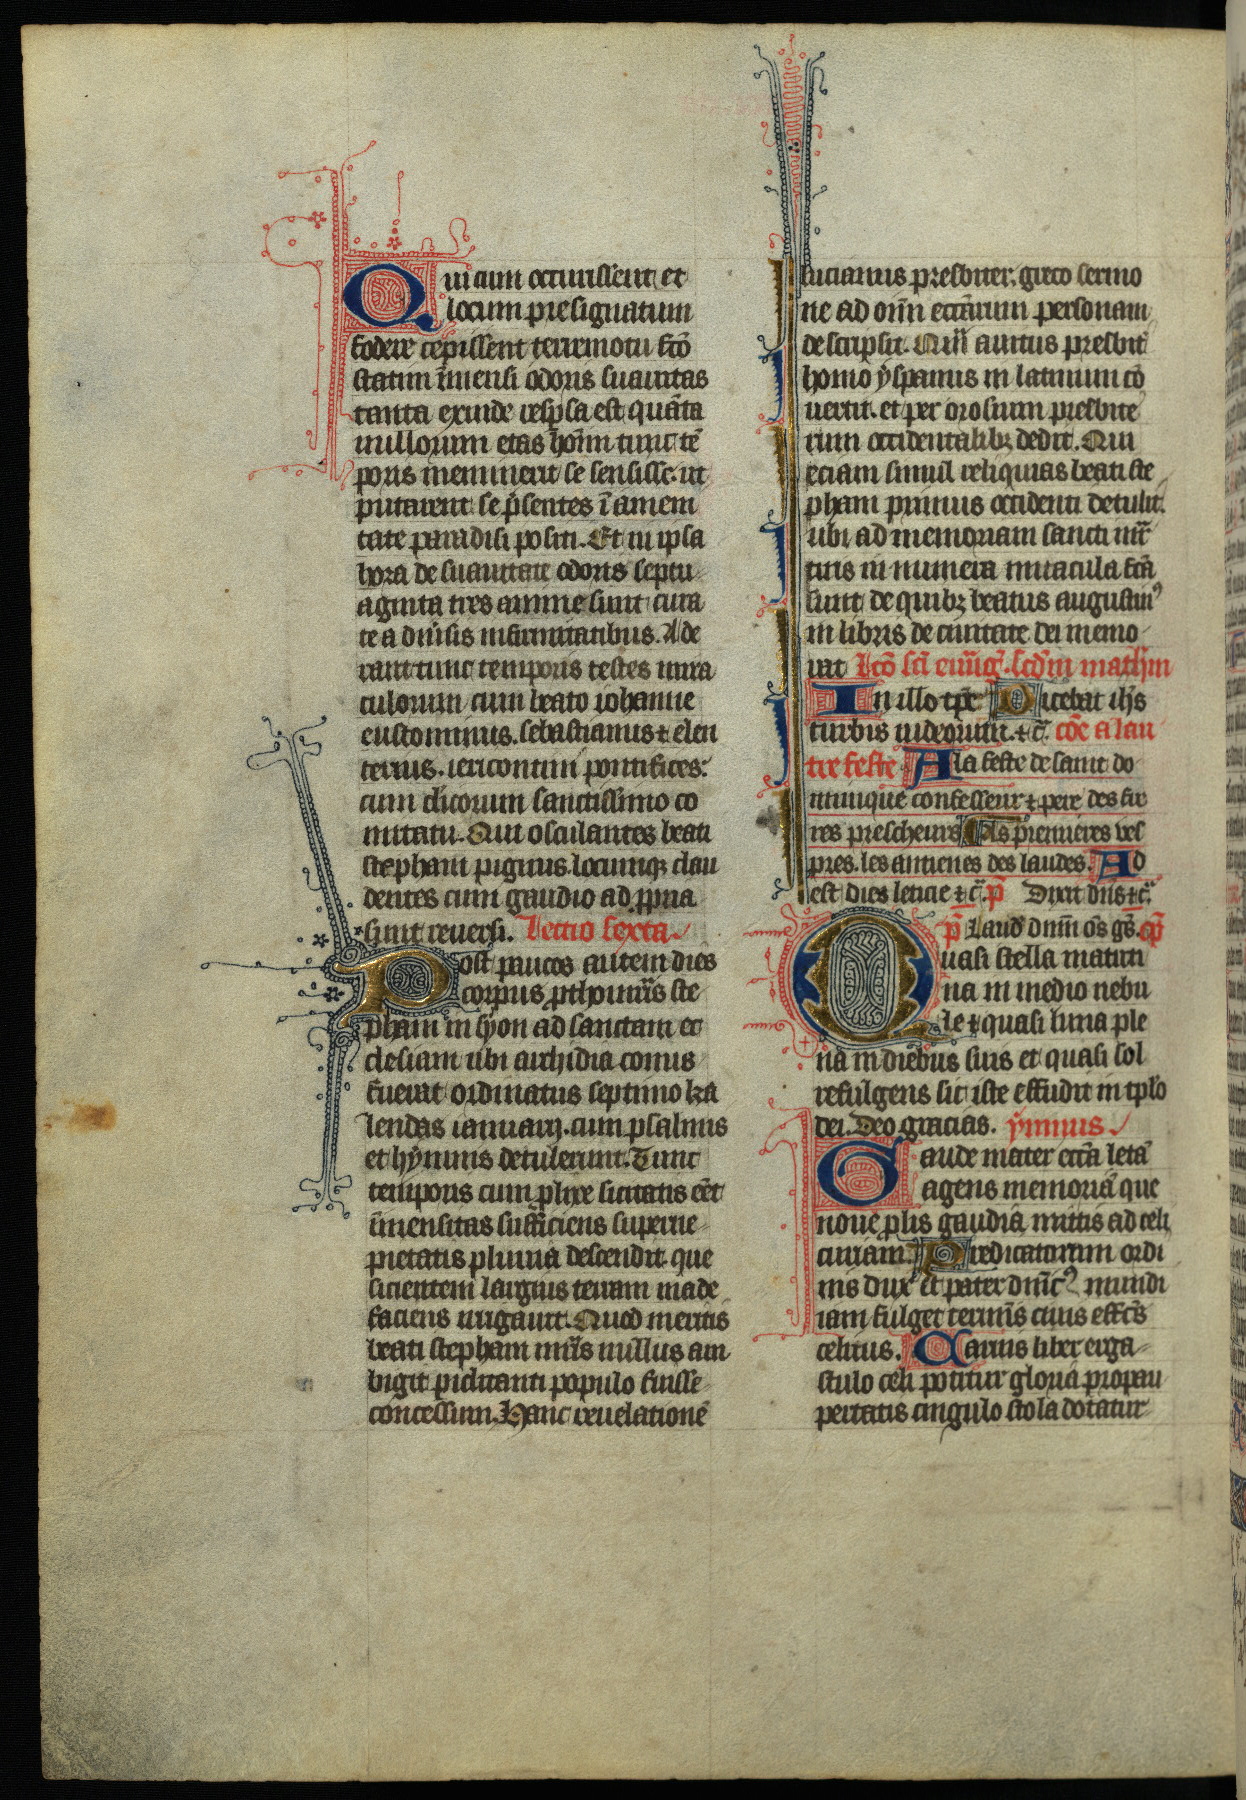 Qui cum occurissent et
locum presignatum
fodere cepissent terremotu fc̄o
statim īmensi odoris suauitas
tanta exinde respersa est quāta
nullorum etas hōim tunc tē
poris meminerit se sensisse. ut
putarent se p̄sentes ī ameni
tate paradisi positi. Et in ipsa
hora de suauitate odoris septu
aginta tres anime sunt cura
te a diūsis infirmitatibus. Ade
rant tunc temporis testes mira
culorum cum beato iohanne
eustominus. sebastianus ⁊ eleu
terius. iericontini pontifices.
cum clicorum sanctissimo co
mitatu. Qui osculantes beati
stephani pignus. locumq; clau
dentes cum gaudio ad ꝓpria
sunt reuersi. Lectio sexta.
Post paucos autem dies
corpus ꝓthomr̄is ste
phani in syon ad sanctam ec
clesiam ubi archidiaconus
fuerat ordinatus septimo ka
lendas ianuarij. cum psalmis
et hỳmnis detulerunt. Tunc
temporis cum ꝓlixe siccitatis eēt
īmensitas sufficiens superne
pietatis pluuia descendit. que
sicientem largius terram made
faciens irrigauit. Quod meritis
beati stephani mr̄is nullus am
bigit p̄dicanti populo fuisse
concessum. Hanc reuelationē
lucianus presbiter. greco sermo
ne ad om̄ eccārum personam
descripsit. Quā auitus presbit̄
homo ẏspanus in latinum cō
uertit. et per orosium presbite
rum occidentalibꝫ dedit. Qui
eciam simul reliquias beati ste
phani primus occidenti detulit.
ubi ad memoriam sancti mr̄
tiris innumera miracula fc̄a
sunt de quibꝫ beatus augustinꝰ
in libris de ciuitate dei memo
rat Lc̄o sc̄i euūḡ. scd̄m math̄m
In illo tp̄r Dicebat ihs̄
turbis iudeorum. ⁊ c̄. cōe a lau
tre feste A la feste de saint do
minique confesseur ⁊ pere des fre
res prescheurs Als premieres ves
pres. les antienes des laudes. Ad
est dies leticie ⁊ c̄. p̄ Dixit dn̄s ⁊ c̄.
p̄ Laud̄ dnm̄ om̄s gn̄s. cp̄
Quasi stella matuti
na in medio nebu
le ⁊ quasi luna ple
na in diebus suis et quasi sol
refulgens sic iste effudit in tp̄lo
dei. Deo gracias. ẏmnus.
Gaude mater ecc̄a letā
agens memoriā que
noue ꝓlis gaudia mittis ad celi
curiam. Predicatorum ordi
nis dux et pater dn̄icꝰ mundi
iam fulget termīs ciuis effc̄s
celicus. Carnis liber erga
stulo celi potitur gloria pro pau
pertatis cingulo stola dotatur